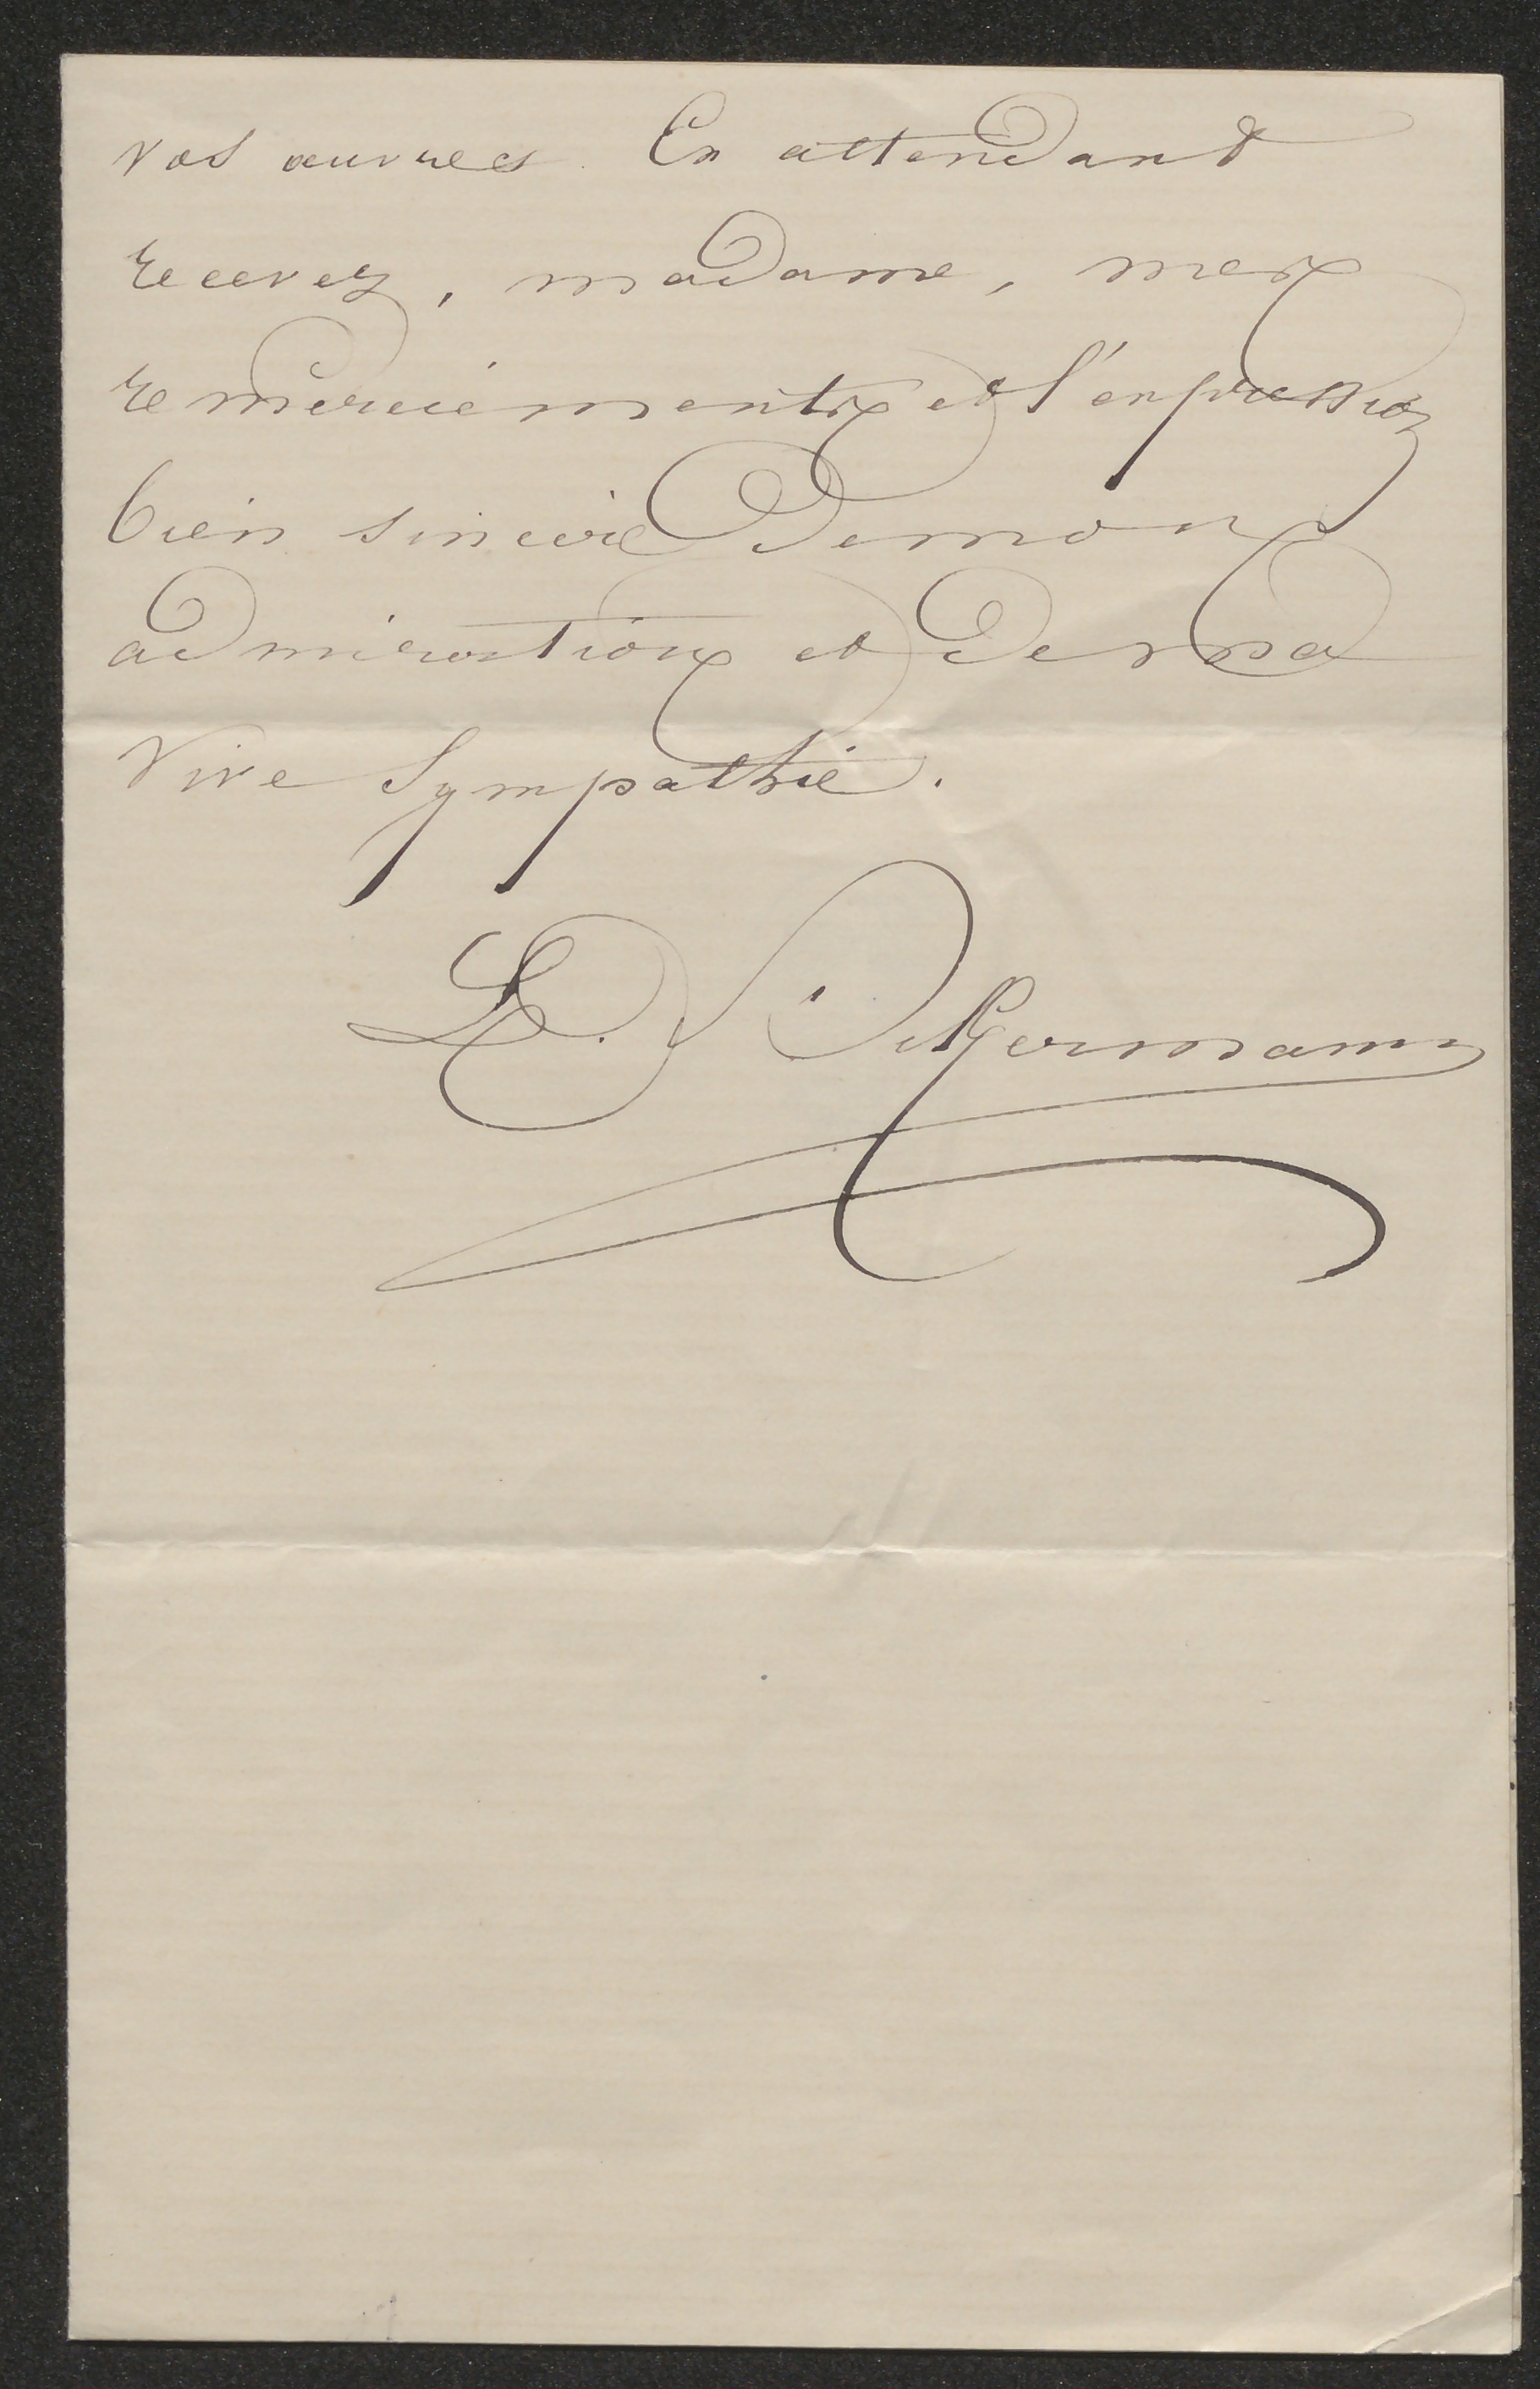 vos œuvres. En attendant
recevez, madame, mes
remerciements et l'expression
bien sincère de mon
admiration et de ma
vive sympathie.
L.